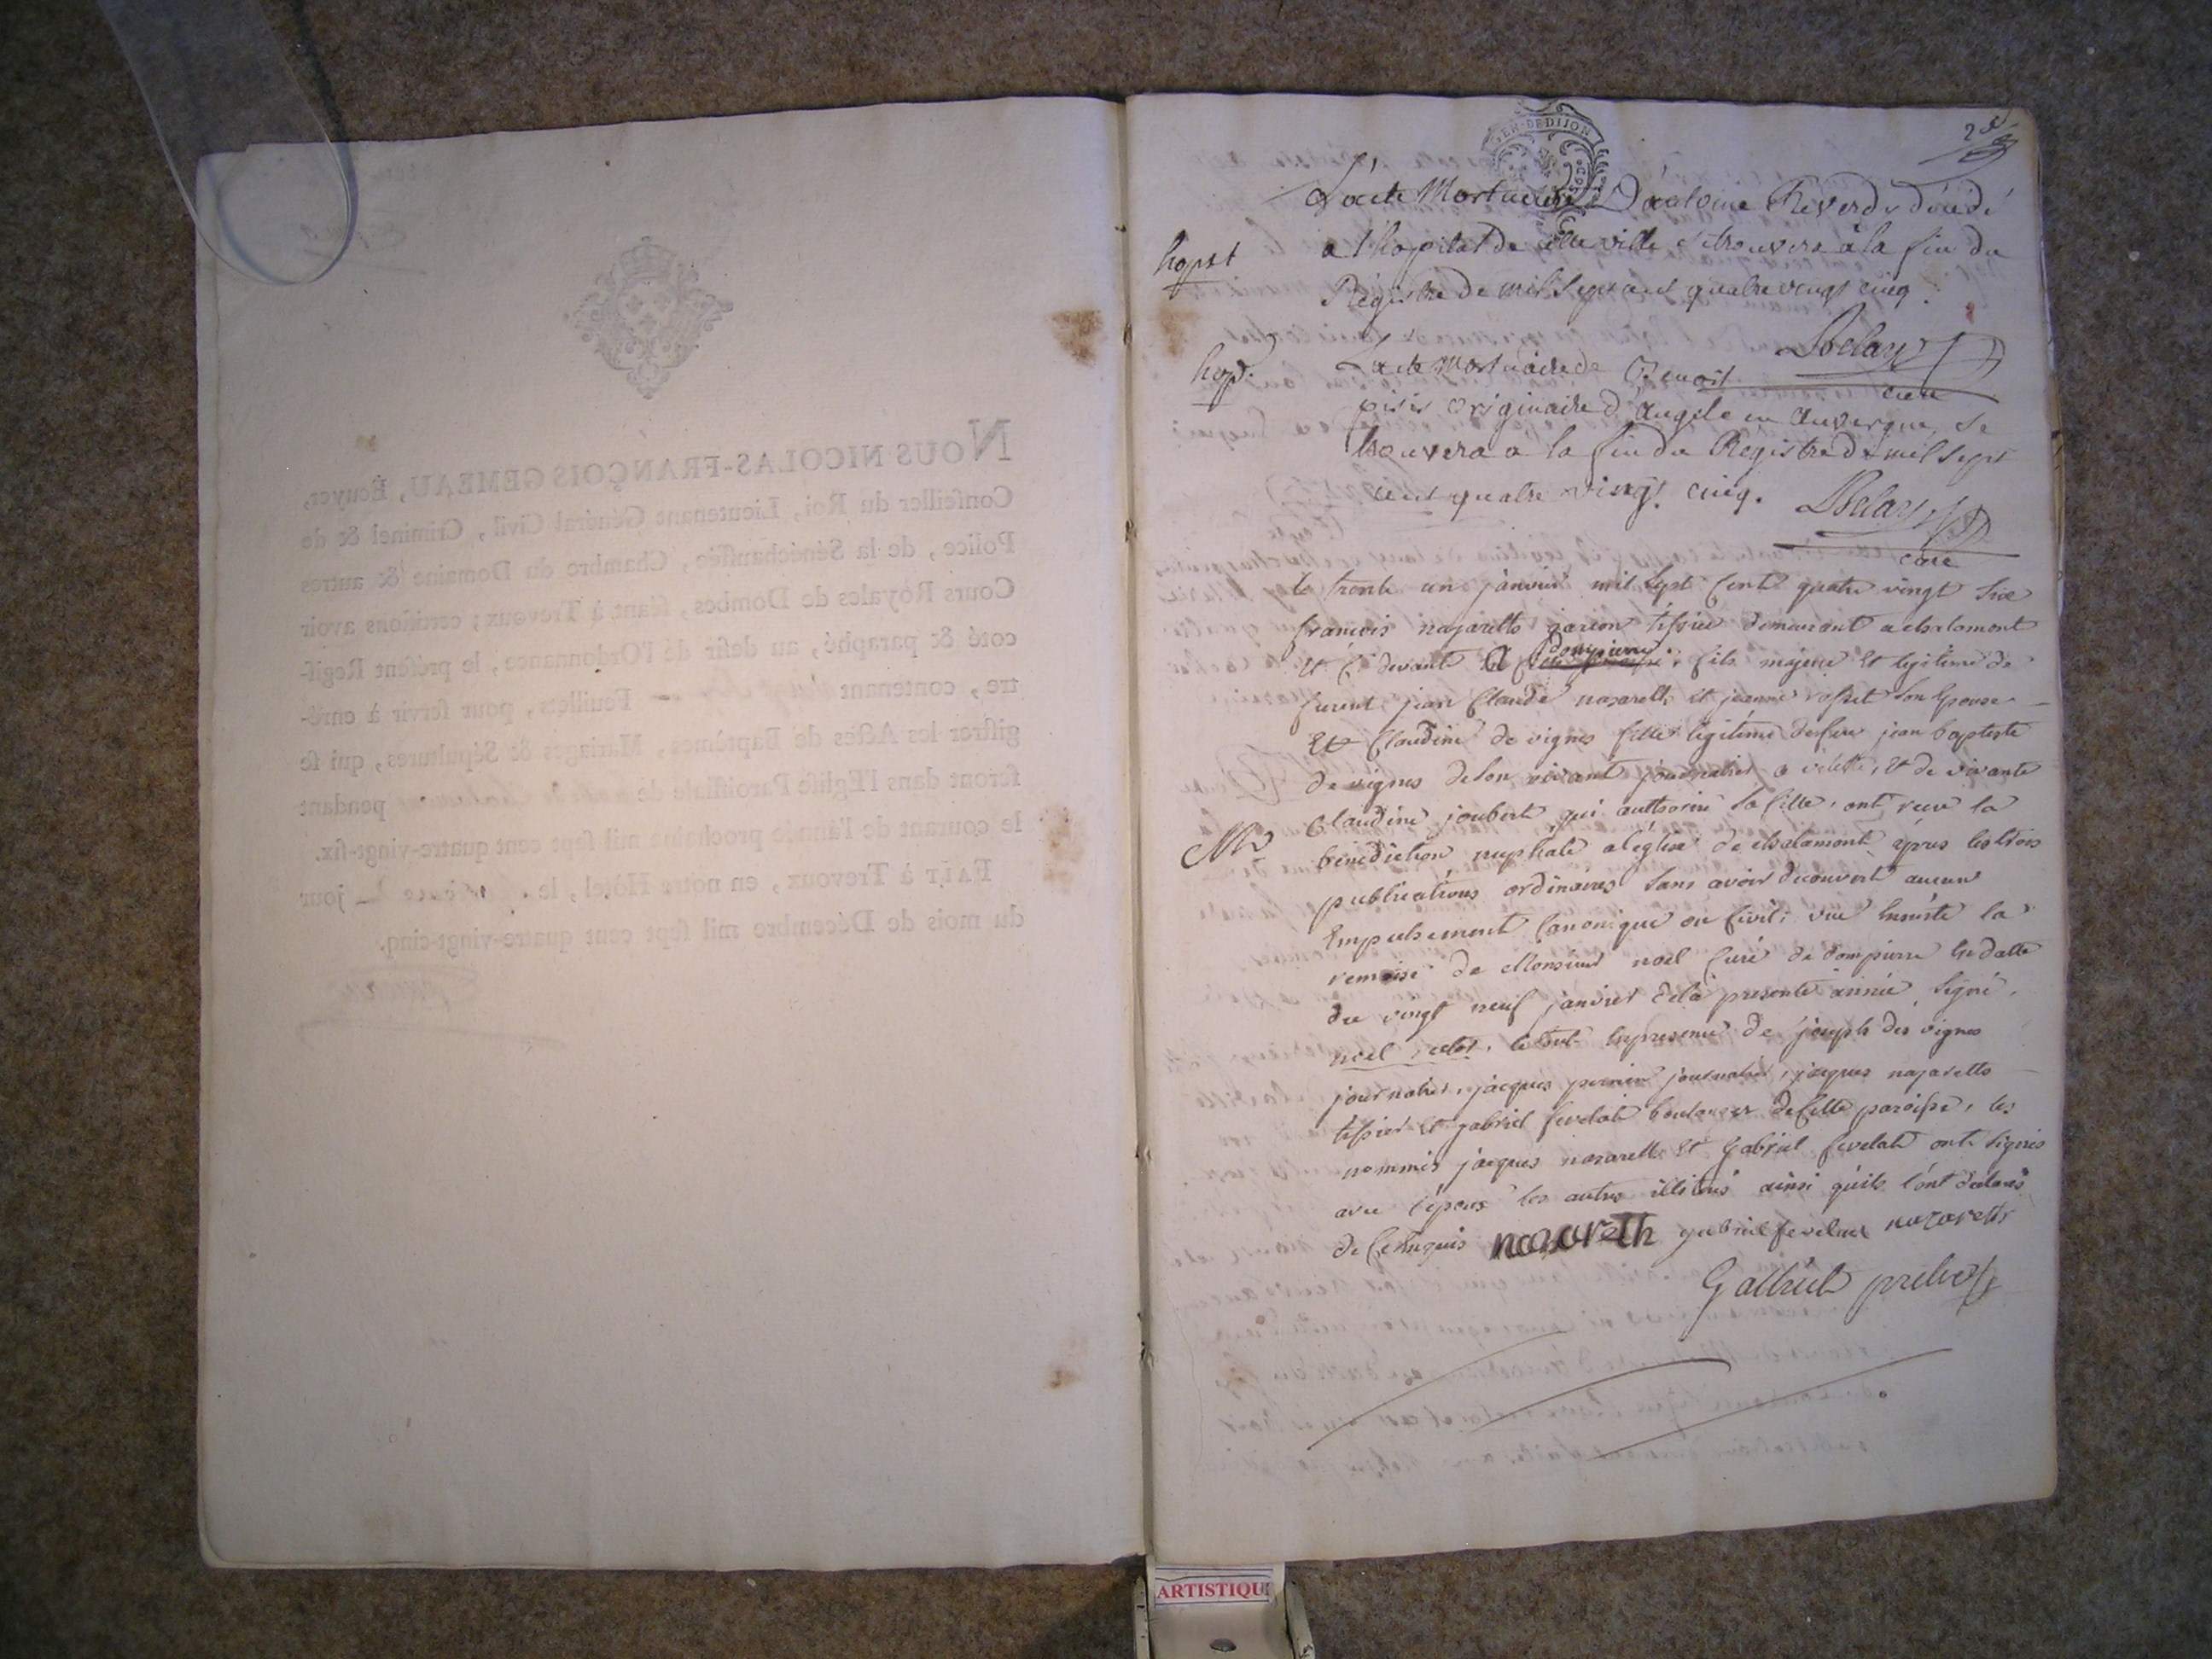 NOUS NICOLAS-FRANÇOIS GEMEAU, Écuyer,
Conseiller du Roi, Lieutenant Général Civil, Criminel & de
Police, de la Sénéchaussée, Chambre du Domaine & autres
Cours Royales de Dombes, séant à Trevoux; certifions avoir
coté & paraphé, au desir de l'Ordonnance, le présent Regis-
tre, contenant Feuillets, pour servir à enré-
gistrer les Actes de Baptêmes, Mariages & Sépultures, qui se
feront dans l'Eglise Paroissiale de pendant
le courant de l'année prochaine mil sept cent quatre-vingt-six.
FAIT à Trevoux, en notre Hôtel, le jour
du mois de Décembre mil sept cent quatre-vingt-cinq.
GEN·DE DIJON
L'acte Mortuaire D'antoine Reverdy décédé
hopst
a l'hopital de cette ville se trouvera à la fin du
Registre de mil sept cent quatre vingt cinq.
Delay
curé
hop.
L'acte mortuaire de Benoit
pisis originaire d'augele en auvergne, se
trouvera a la fin du Registre de mil sept
cent quatre vingt cinq.
Delay
curé
le trente un janvier mil sept cent quatre vingt six
françois nazareth garçon tissier demeurant a chalamont
et cy devant a dompierre, fils majeur et legitime de
furent jean Claude nazareth et jeanne rosset son epouse
et Claudine de vignes fille legitime defeu jean baptiste
de vignes de son vivant journalier a vilette, et de vivante
Claudine joubert qui authorise sa fille, ont recu la
M
bénédiction nuptiale a l'église de chalamont après les trois
publications ordinaires sans avoir decouvert aucun
empechement canonique ou civil; vue ensuite la
remise de Monsieur noel curé de dompierre en datte
du vingt neuf janvier de la presente année, signé
noel, le tout en presence de joseph des vignes
journalier, jacques perrin journalier, jacques nazareth
tissier et gabriel fevelat boulanger de cette paroisse, les
nommés jacques nazareth et gabriel fevelat ont signés
avec l'époux les autres illiterés ainsi qu'ils l'ont declarés
de ce enquis nazareth gabriel fevelat nazareth
Galliut